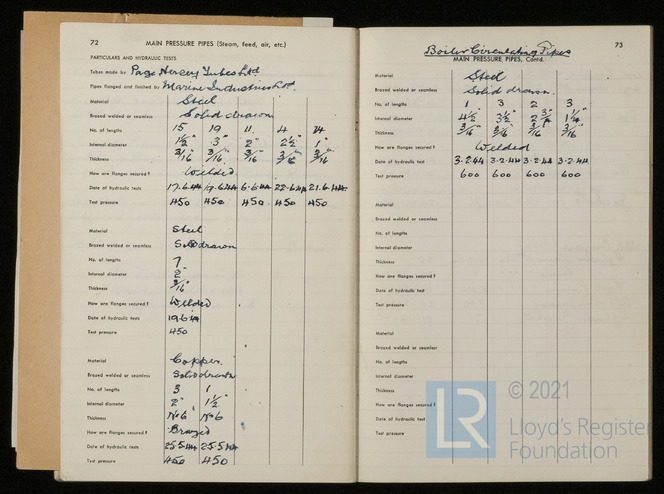 72 MAIN PRESSURE PIPES (Steam, feed, air, etc.)
PARTICULARS AND HYDRAULIC TESTS
Tubes made by Page Hersey Tubes Ltd
Pipes flanged and finished by Marine Industries Ltd.
Material Steel
Brazed welded or seamless Solid drawn
No. of lengths 15 19 11 4 24
Internal diameter 1½" 3" 2" 2½" 1"
Thickness 3/16" 3/16" 3/16" 3/16" 3/16"
How are flanges secured? Welded
Date of hydraulic tests 17.6.44 19.6.44 6.6.44 22.6.44 21.6.44
Test pressure 450 450 450 450 450
Material Steel
Brazed welded or seamless Solid drawn
No. of lengths 7
Internal diameter 2"
Thickness 3/16"
How are flanges secured? Welded
Date of hydraulic tests 19.6.44
Test pressure 450
Material Copper.
Brazed welded or seamless Solid drawn
No. of lengths 3 1
Internal diameter 2" 1½"
Thickness No 6 No 6
How are flanges secured? Brazed
Date of hydraulic tests 25.5.44 25.5.44
Test pressure 450 450
73
Boiler Circulating Pipes
MAIN PRESSURE PIPES, Contd.
Material Steel
Brazed welded or seamless Solid drawn.
No. of lengths 1 3 2 3
Internal diameter 4½" 3½" 1¼"
Thickness 3/16" 3/16" 3/16" 3/16"
How are flanges secured? Welded
Date of hydraulic test 3.2.44 3.2.44 3.2.44 3.2.44
Test pressure 600 600 600 600
Material
Brazed welded or seamless
No. of lengths
Internal diameter
Thickness
How are flanges secured?
Date of hydraulic test
Test pressure
Material
Brazed welded or seamless
No. of lengths
Internal diameter
Thickness
How are flanges secured?
Date of hydraulic test
Test pressure
LR © 2021
Lloyd's Register
Foundation